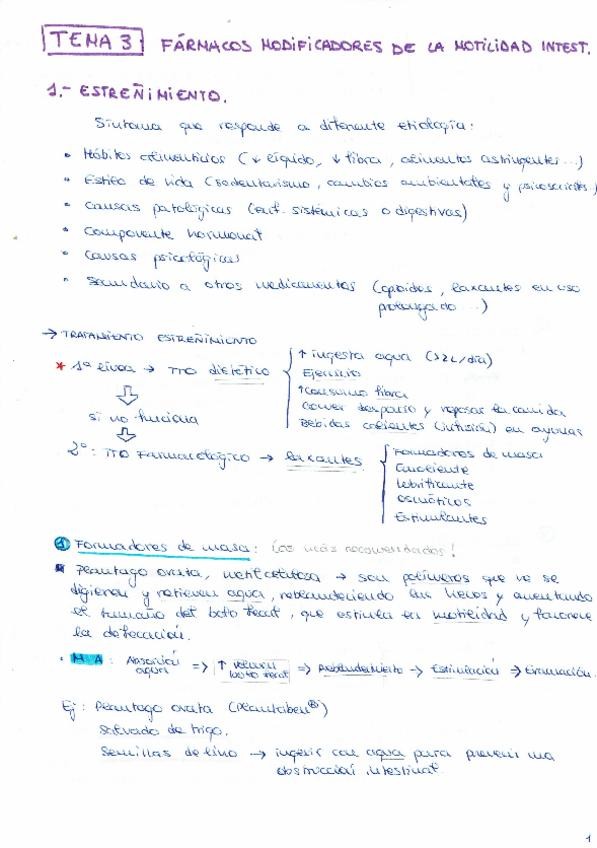 TEMA 3 FÁRMACOS MODIFICADORES DE LA MOTILIDAD INTEST.
1.- ESTREÑIMIENTO.
Síntoma que responde a diferente etiología:
• Hábitos alimenticios (↓ líquido, ↓ fibra, alimentos astringentes...)
• Estilo de vida (sedentarismo, cambios ambientales y psicosociales)
• Causas patológicas (enf. sistémicas o digestivas)
• Componente hormonal
• Causas psicológicas
• Secundario a otros medicamentos (opioides, laxantes en uso
prolongado ...)
→ TRATAMIENTO ESTREÑIMIENTO
* 1ª línea → TTO dietético
↑ ingesta agua (>2L/día)
Ejercicio
↑ Consumo fibra
Comer despacio y reposar la comida
Bebidas calientes (infusión) en ayunas
si no funciona
2º: TTO Farmacológico → laxantes
Formadores de masa
Emoliente
Lubrificante
Osmóticos
Estimulantes
① Formadores de masa: ¡Los más recomendados!
Plantago ovata, metilcelulosa → son polímeros que no se
digieren y retienen agua, reblandeciendo las heces y aumentando
el tamaño del bolo fecal, que estimula la motilidad y favorece
la defecación.
• M A : Absorción agua => ↑ volumen bolo fecal => Reblandecimiento → Estimulación → Eliminación.
Ej: Plantago ovata (Plantaben®)
Salvado de trigo.
Semillas de lino → ingerir con agua para prevenir una
obstrucción intestinal.
1